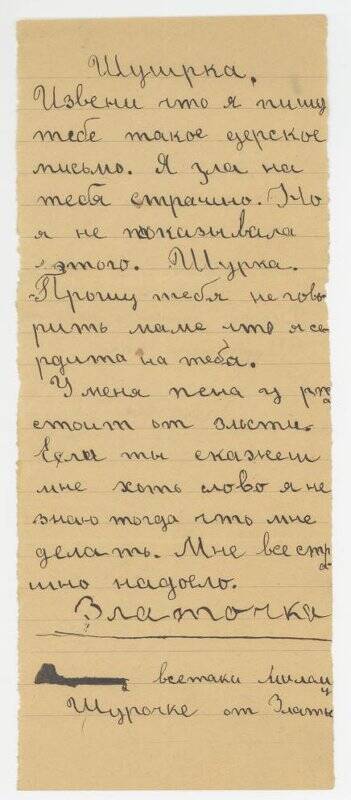 Шушрка.
Извени что я пишу
тебе такое дерское
письмо. Я зла на
тебя страчино. Но
я не показывала
этого. Шурка.
Прошу тебя не гово
рить маме что я се
рдита на тебя.
У меня пена у рта
стоит от злысти.
Если ты скажеш
мне хоть слово я не
знаю тогда что мне
делать. Мне все стра
шно надоело.
Златочка
всетаки милай
Шурочке от Златы